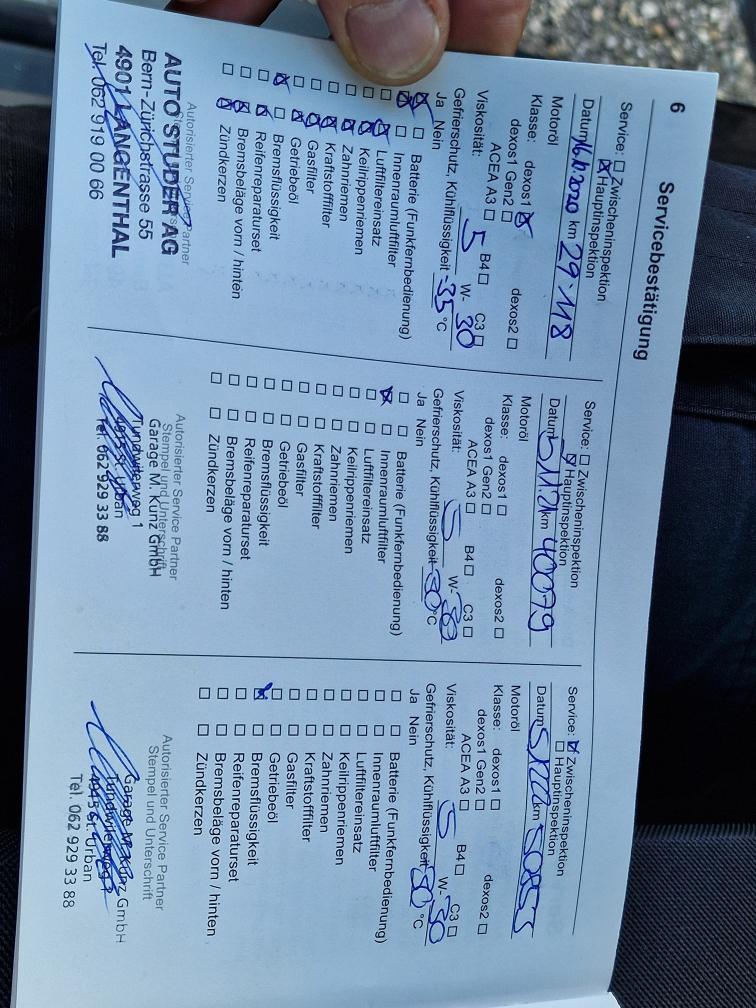 6
Servicebestätigung
Service: ☐ Zwischeninspektion
☒ Hauptinspektion
Datum 16.11.2020 km 29.118
Motoröl
Klasse: dexos1 ☒ dexos2 ☐
dexos1 Gen2 ☐
ACEA A3 ☐ B4 ☐ C3 ☐
Viskosität: 5 W- 30
Gefrierschutz, Kühlflüssigkeit -35 °C
Ja Nein
Batterie (Funkfernbedienung)
Innenraumluftfilter
Luftfiltereinsatz
Keilrippenriemen
Zahnriemen
Kraftstofffilter
Gasfilter
Getriebeöl
Bremsflüssigkeit
Reifenreparaturset
Bremsbeläge vorn / hinten
Zündkerzen
Autorisierter Service Partner
AUTO STUDER AG
Bern-Zürichstrasse 55
4901 LANGENTHAL
Tel. 062 919 00 66
Service: ☐ Zwischeninspektion
☒ Hauptinspektion
Datum km 40079
Motoröl
Klasse: dexos1 ☐ dexos2 ☐
dexos1 Gen2 ☐
ACEA A3 ☐ B4 ☐ C3 ☐
Viskosität: 5 W- 30
Gefrierschutz, Kühlflüssigkeit -30 °C
Ja Nein
Batterie (Funkfernbedienung)
Innenraumluftfilter
Luftfiltereinsatz
Keilrippenriemen
Zahnriemen
Kraftstofffilter
Gasfilter
Getriebeöl
Bremsflüssigkeit
Reifenreparaturset
Bremsbeläge vorn / hinten
Zündkerzen
Autorisierter Service Partner
Stempel und Unterschrift
Garage M. Kunz GmbH
Tundwilerweg 1
4915 St. Urban
Tel. 062 929 33 88
Service: ☒ Zwischeninspektion
☐ Hauptinspektion
Datum km
Motoröl
Klasse: dexos1 ☐ dexos2 ☐
dexos1 Gen2 ☐
ACEA A3 ☐ B4 ☐ C3 ☐
Viskosität: 5 W- 30
Gefrierschutz, Kühlflüssigkeit -30 °C
Ja Nein
Batterie (Funkfernbedienung)
Innenraumluftfilter
Luftfiltereinsatz
Keilrippenriemen
Zahnriemen
Kraftstofffilter
Gasfilter
Getriebeöl
Bremsflüssigkeit
Reifenreparaturset
Bremsbeläge vorn / hinten
Zündkerzen
Autorisierter Service Partner
Stempel und Unterschrift
Garage M. Kunz GmbH
Tundwilerweg 1
4915 St. Urban
Tel. 062 929 33 88